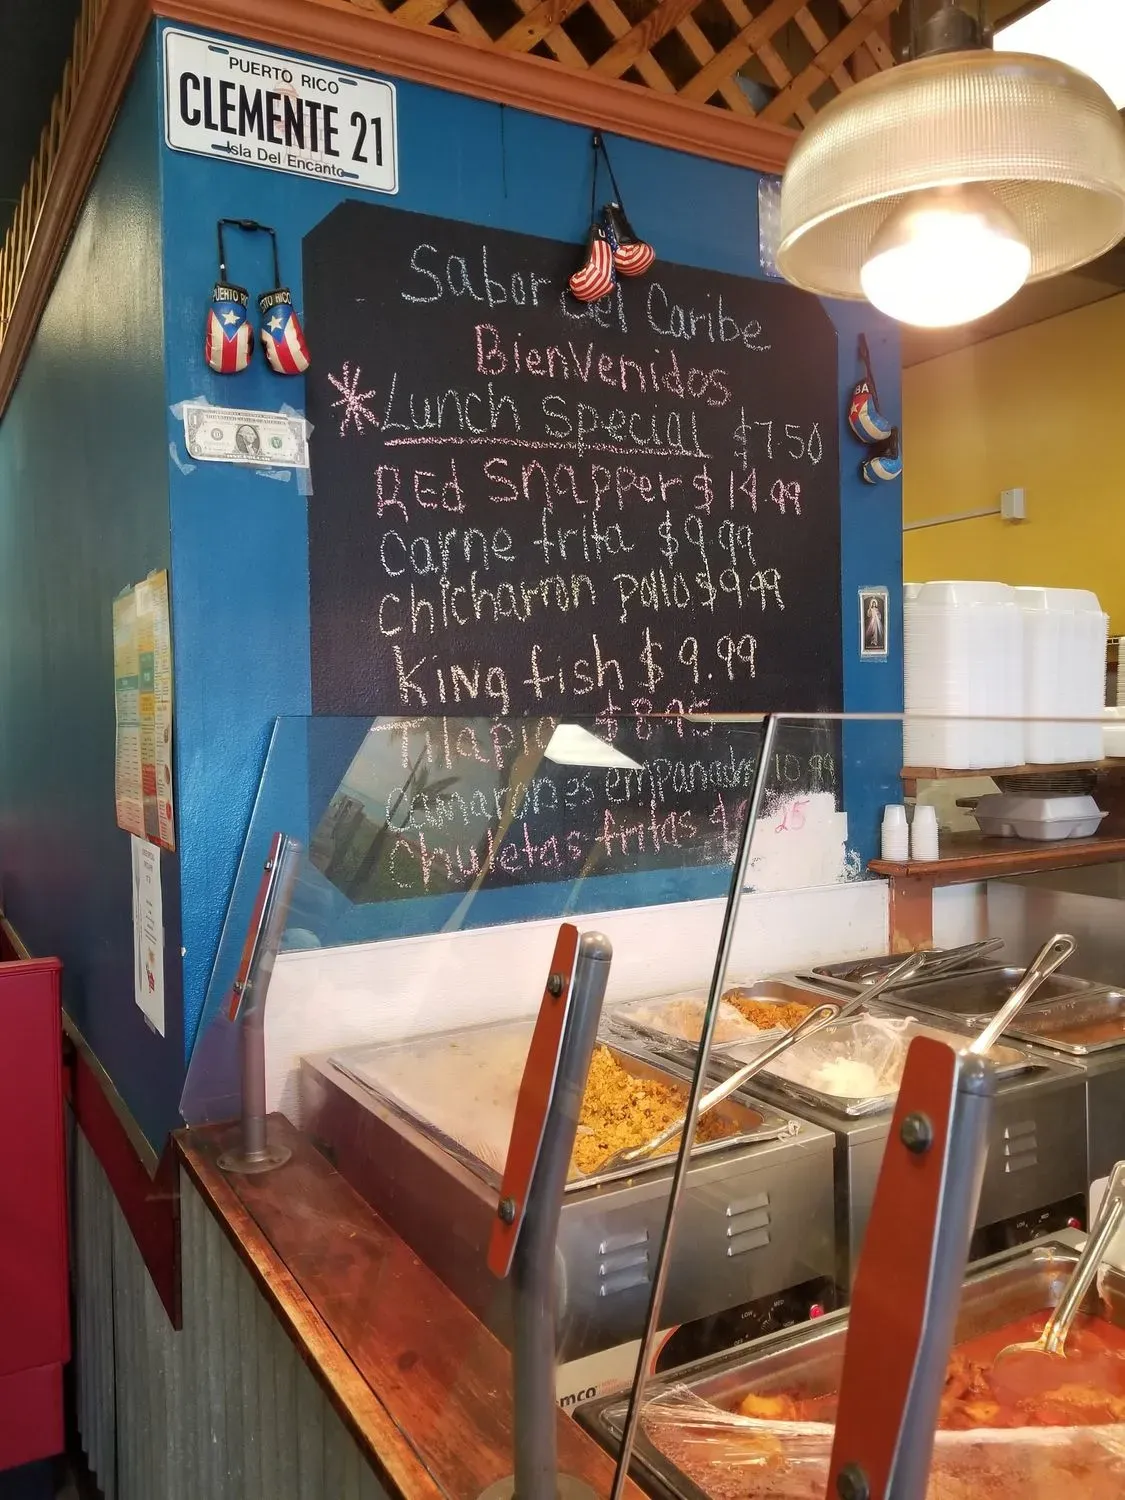 PUERTO RICO
CLEMENTE 21
Isla Del Encanto
PUERTO RI
RTO RICO
Sabor del Caribe
BienVenidos
*Lunch Special $7.50
REd Snapper $14.99
Carne frita $9.99
chicharron pollo $9.99
King fish $9.99
Tilapia $8.95
camarones empanada 10.99
chuletas fritas
25
BA
LOW
MED
LOW
MED
HIGH
OFF
mco